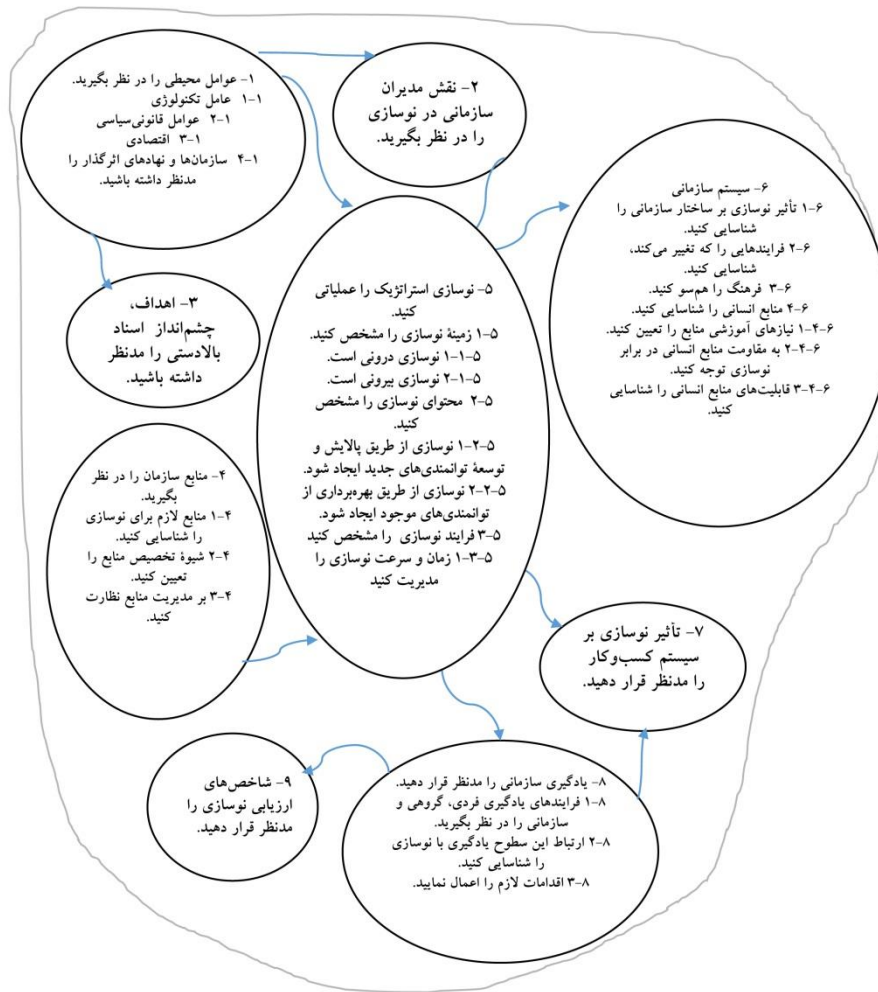 ۱- عوامل محیطی را در نظر بگیرید.
۱-۱ عامل تکنولوژی
۲-۱ عوامل قانونی‌سیاسی
۳-۱ اقتصادی
۴-۱ سازمان‌ها و نهادهای اثرگذار را
مدنظر داشته باشید.
۲- نقش مدیران
سازمانی در نوسازی
را در نظر بگیرید.
۳- اهداف،
چشم‌انداز اسناد
بالادستی را مدنظر
داشته باشید.
۴- منابع سازمان را در نظر
بگیرید.
۱-۴ منابع لازم برای نوسازی
را شناسایی کنید.
۲-۴ شیوهٔ تخصیص منابع را
تعیین کنید.
۳-۴ بر مدیریت منابع نظارت
کنید
۵- نوسازی استراتژیک را عملیاتی
کنید.
۱-۵ زمینهٔ نوسازی را مشخص کنید.
۱-۱-۵ نوسازی درونی است.
۲-۱-۵ نوسازی بیرونی است.
۲-۵ محتوای نوسازی را مشخص
کنید.
۱-۲-۵ نوسازی از طریق پالایش و
توسعهٔ توانمندی‌های جدید ایجاد شود.
۲-۲-۵ نوسازی از طریق بهره‌برداری از
توانمندی‌های موجود ایجاد شود.
۳-۵ فرایند نوسازی را مشخص کنید
۱-۳-۵ زمان و سرعت نوسازی را
مدیریت کنید
۶- سیستم سازمانی
۱-۶ تأثیر نوسازی بر ساختار سازمانی را
شناسایی کنید.
۲-۶ فرایندهایی را که تغییر می‌کند،
شناسایی کنید.
۳-۶ فرهنگ را هم‌سو کنید.
۴-۶ منابع انسانی را شناسایی کنید.
۱-۴-۶ نیازهای آموزشی منابع را تعیین کنید.
۲-۴-۶ به مقاومت منابع انسانی در برابر
نوسازی توجه کنید.
۳-۴-۶ قابلیت‌های منابع انسانی را شناسایی
کنید.
۷- تأثیر نوسازی بر
سیستم کسب‌وکار
را مدنظر قرار دهید.
۸- یادگیری سازمانی را مدنظر قرار دهید.
۱-۸ فرایندهای یادگیری فردی، گروهی و
سازمانی را در نظر بگیرید.
۲-۸ ارتباط این سطوح یادگیری با نوسازی
را شناسایی کنید.
۳-۸ اقدامات لازم را اعمال نمایید.
۹- شاخص‌های
ارزیابی نوسازی را
مدنظر قرار دهید.